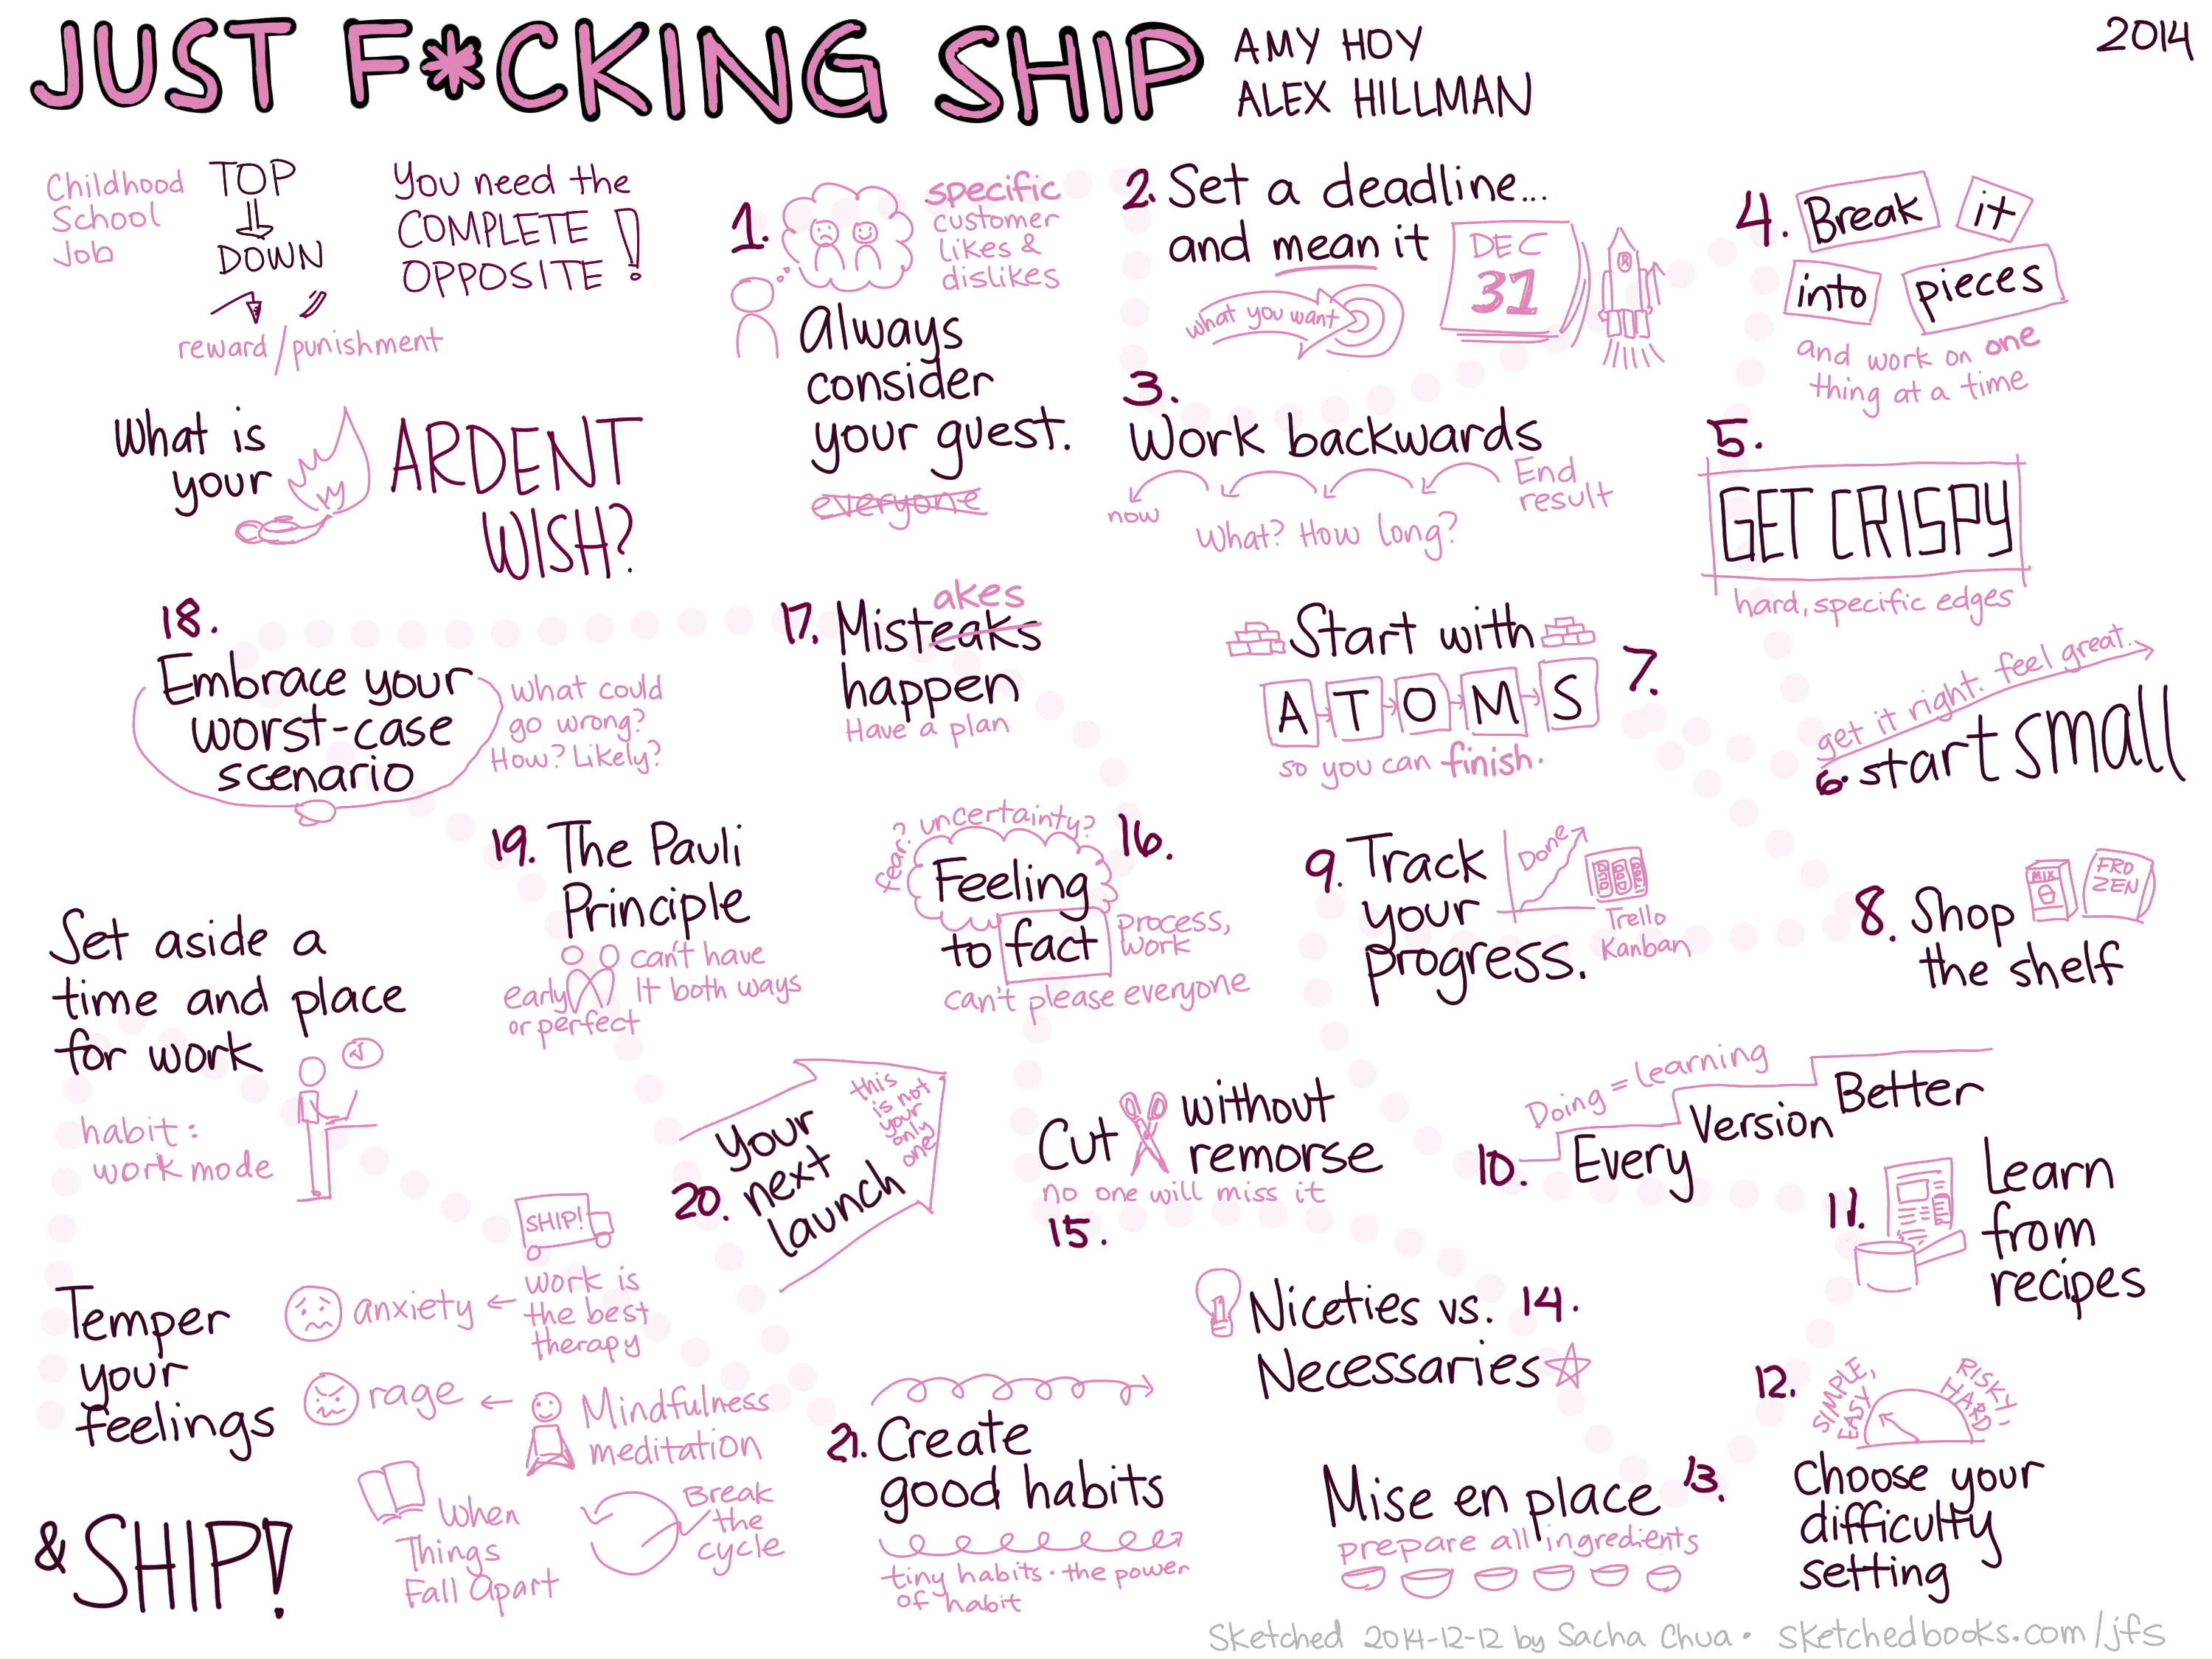 JUST F*CKING SHIP
AMY HOY
ALEX HILLMAN
2014
Childhood
School
Job
TOP
DOWN
reward / punishment
You need the
COMPLETE
OPPOSITE!
What is
your
ARDENT
WISH?
1.
specific
customer
likes &
dislikes
Always
consider
your guest.
everyone
2. Set a deadline...
and mean it
what you want
DEC
31
3.
Work backwards
now
End
result
What? How long?
4. Break it
into pieces
and work on one
thing at a time
5.
GET CRISPY
hard, specific edges
get it right. feel great.
6. start small
7.
Start with
ATOMS
so you can finish.
8. Shop
the shelf
MIX
FRO
ZEN
9. Track
your
progress.
Done
Trello
Kanban
Doing = Learning
10. Every Version Better
11. Learn
from
recipes
12.
SIMPLE,
EASY
RISKY
HARD
Choose your
difficulty
setting
13.
Mise en place
prepare all ingredients
14.
Niceties vs.
Necessaries
Cut without
remorse
no one will miss it
15.
16.
fear? uncertainty?
Feeling
to fact
process,
work
can't please everyone
17. Misteaks
akes
happen
Have a plan
18.
Embrace your
worst-case
scenario
What could
go wrong?
How? Likely?
19. The Pauli
Principle
early
or perfect
can't have
it both ways
20. your
next
launch
this
is not
your
only
one
21. Create
good habits
tiny habits • the power
of habit
Set aside a
time and place
for work
habit:
work mode
Temper
your
feelings
anxiety
SHIP!
work is
the best
therapy
rage
Mindfulness
meditation
When
Things
Fall Apart
Break
the
cycle
& SHIP!
Sketched 2014-12-12 by Sacha Chua • sketchedbooks.com/jfs